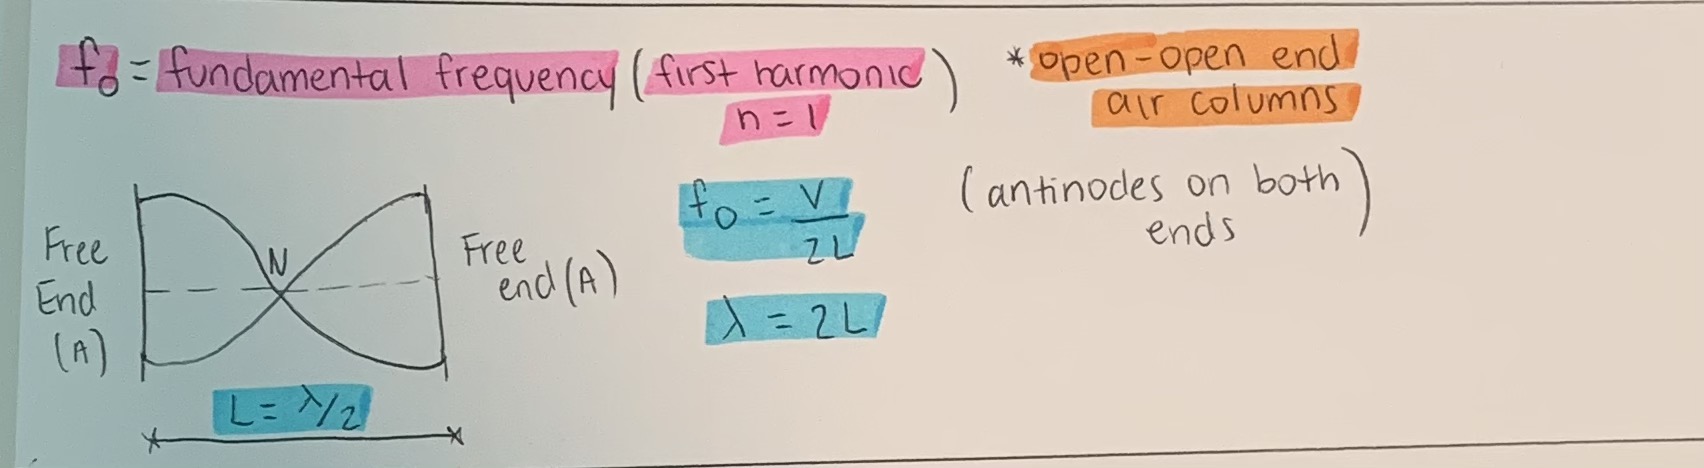 f₀ = fundamental frequency (first harmonic n = 1)
* open-open end
air columns
(antinodes on both ends)
f₀ = V/2L
λ = 2L
Free End (A)
N
Free end (A)
L = λ/2